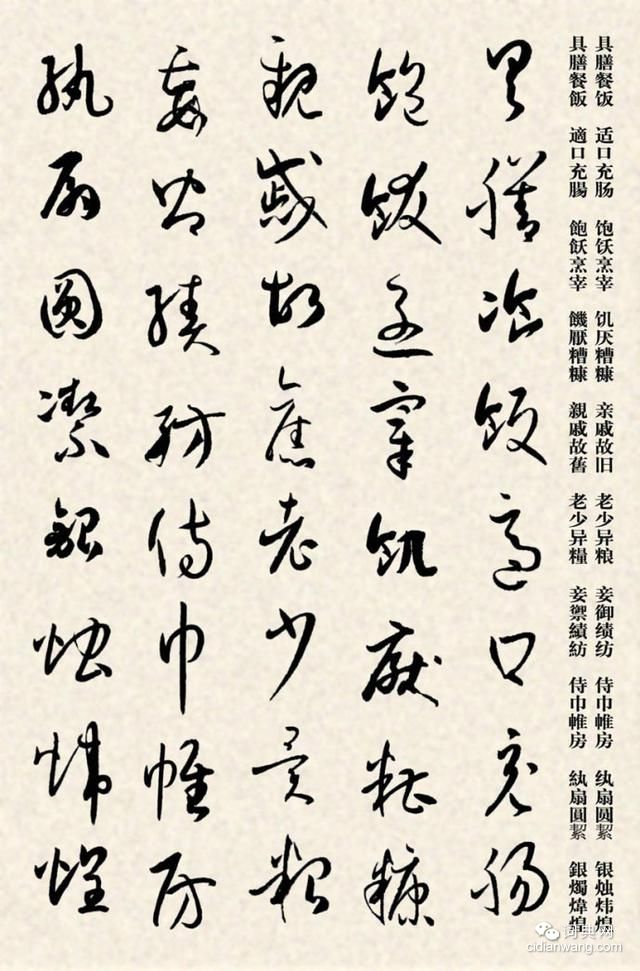 具膳餐饭 适口充肠 饱饫烹宰 饥厌糟糠 亲戚故旧 老少异粮 妾御绩纺 侍巾帷房 纨扇圆絜 银烛炜煌
具膳餐飯 適口充腸 飽飫烹宰 饑厭糟糠 親戚故舊 老少异糧 妾禦績紡 侍巾帷房 紈扇圓絜 銀燭煒煌
具膳飡飯適口充腸
飽飫烹宰飢厭糟糠
親戚故舊老少異粮
妾御績紡侍巾帷房
紈扇圓潔銀燭煒煌
词典网
cidianwang.com